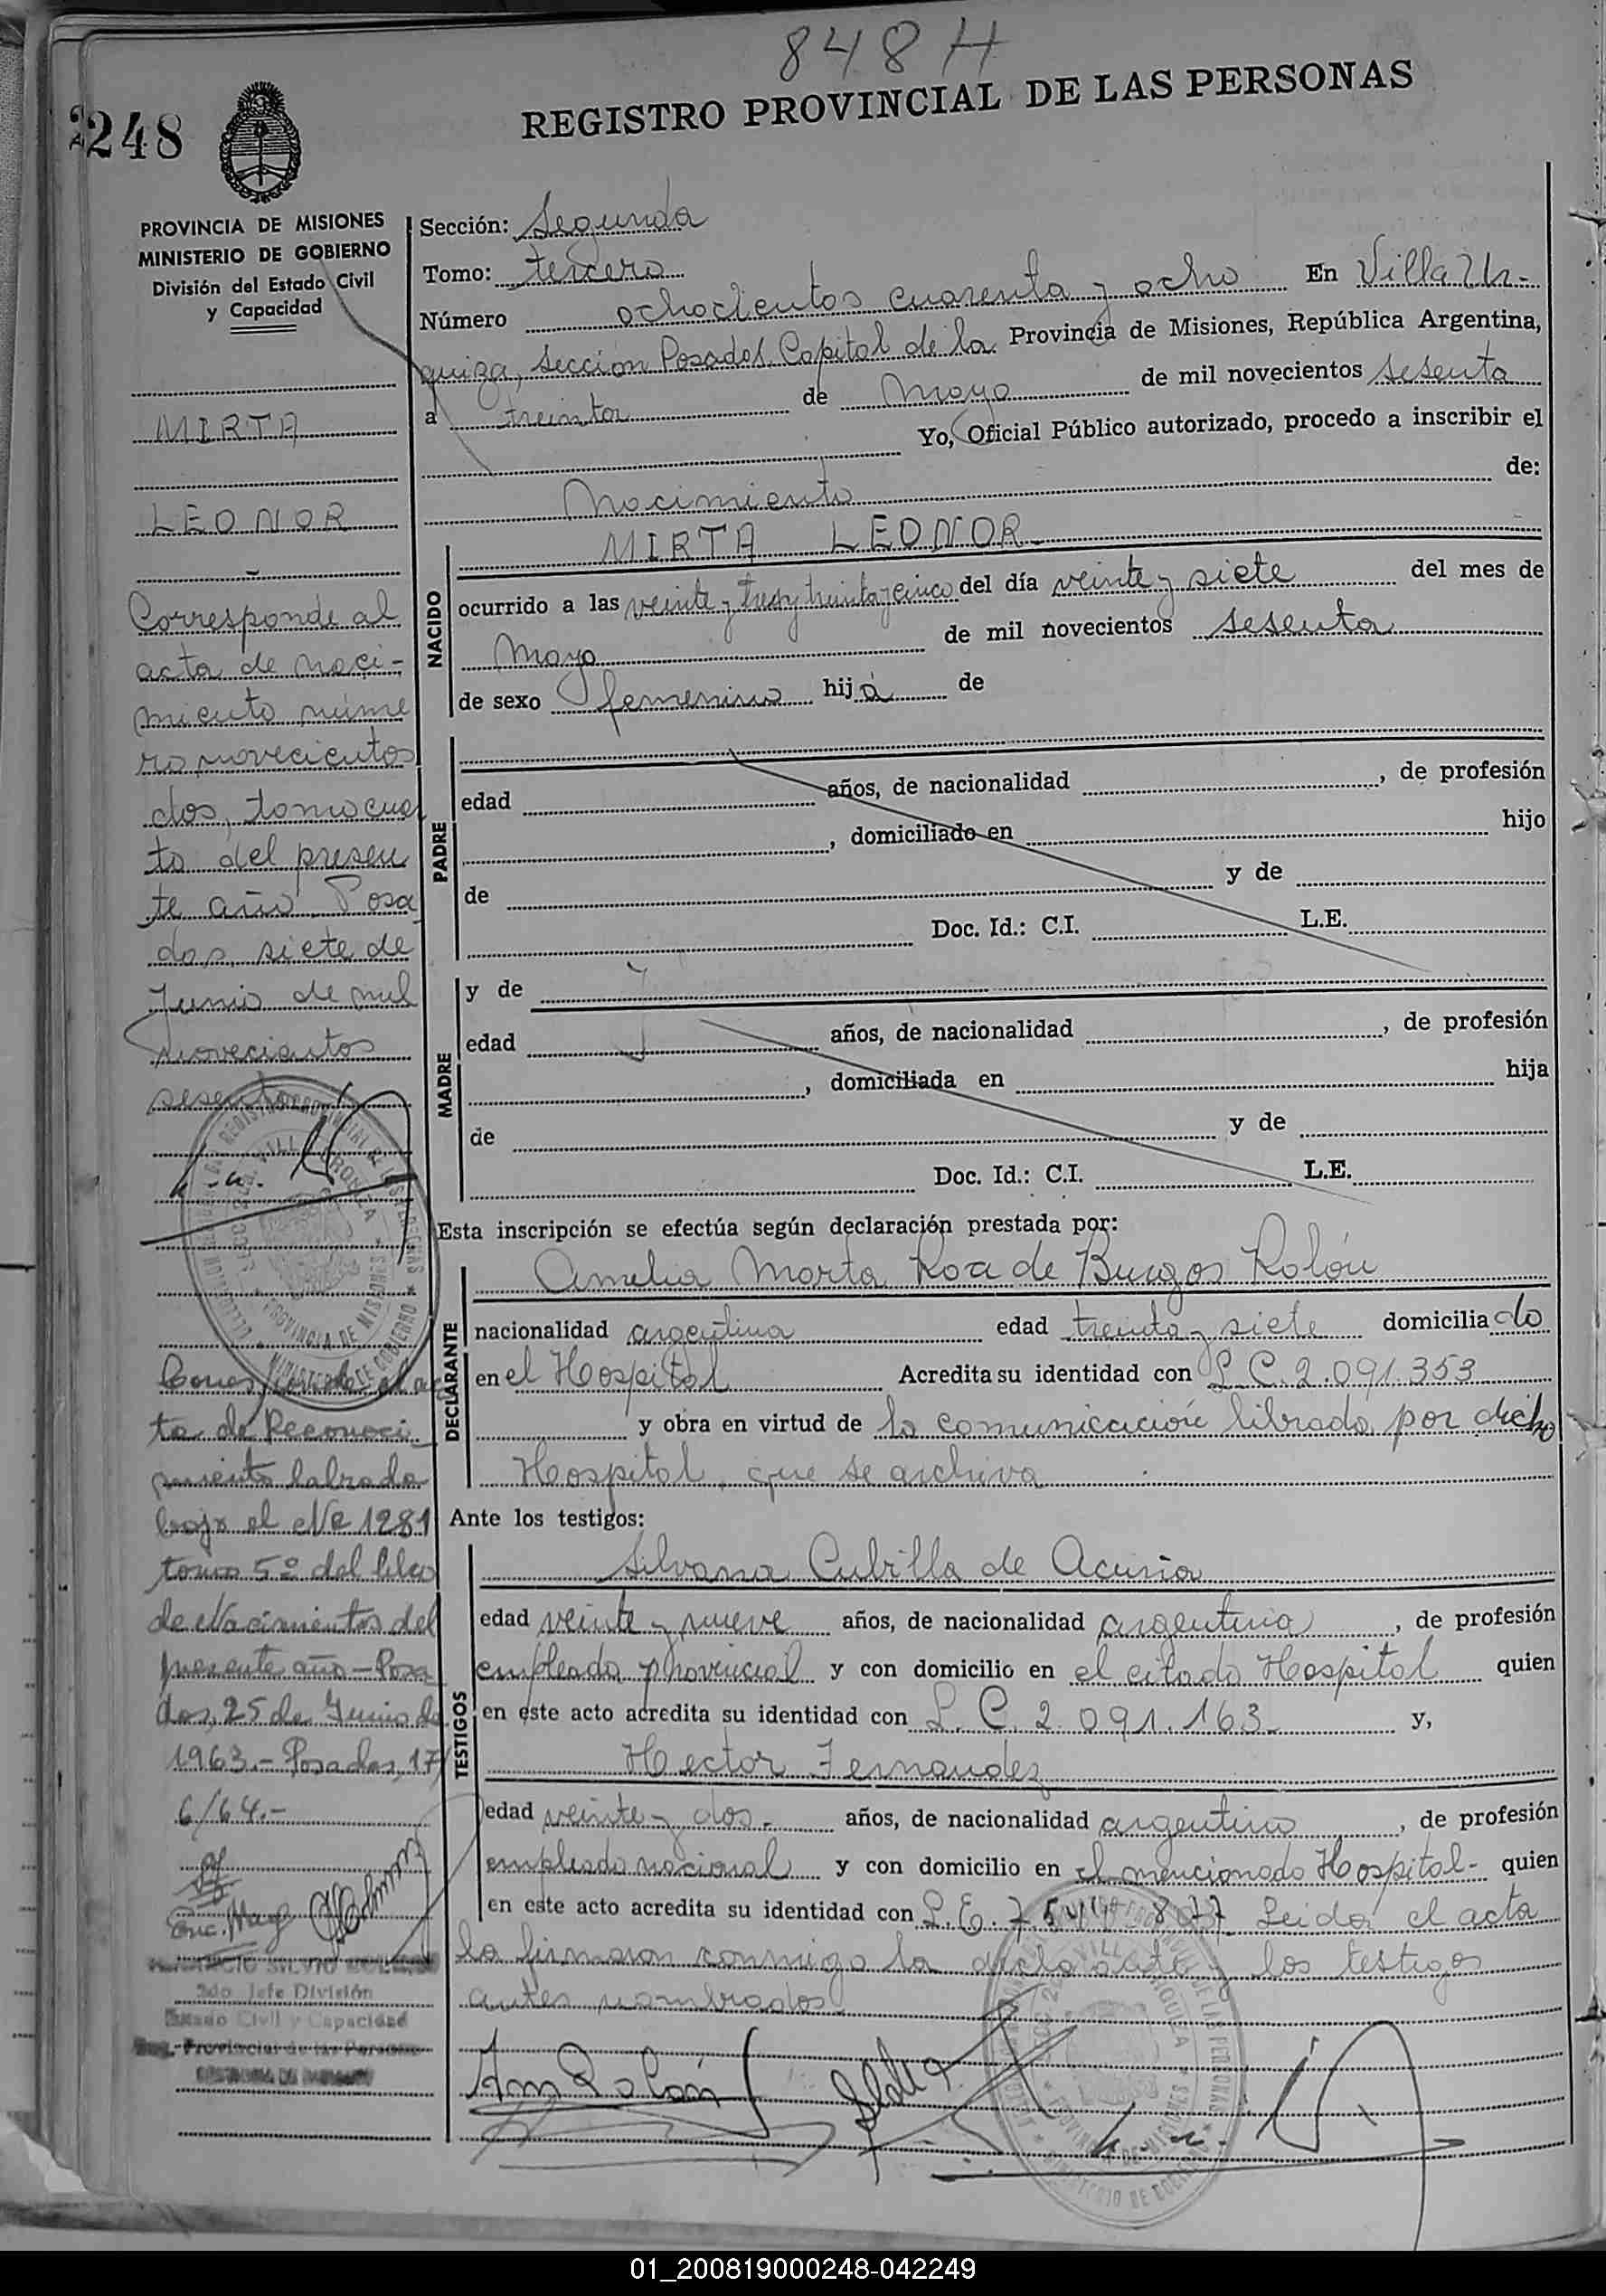 848 H
248
REGISTRO PROVINCIAL DE LAS PERSONAS
PROVINCIA DE MISIONES
MINISTERIO DE GOBIERNO
División del Estado Civil
y Capacidad
MIRTA
LEONOR
Corresponde al
acta de naci-
miento núme
ro novecientos
dos, tomo cuar
to del presen
te año. Posa
das, siete de
Junio de mil
novecientos
sesenta
Corresponde al ac
ta de Reconoci
miento labrada
bajo el Nº 1281
tomo 5º del libro
de Nacimientos del
presente año - Posa
das, 25 de Junio de
1963.- Posadas, 17/
6/64.-
2do Jefe División
Estado Civil y Capacidad
Reg. Provincial de las Personas
Sección: Segunda
Tomo: tercero
Número ochocientos cuarenta y ocho En Villa Ur-
quiza, sección Posadas Capital de la Provincia de Misiones, República Argentina,
a treinta de Mayo de mil novecientos sesenta
Yo, Oficial Público autorizado, procedo a inscribir el
Nacimiento de:
NACIDO
MIRTA LEONOR-
ocurrido a las veinte y tres y treinta y cinco del día veinte y siete del mes de
Mayo de mil novecientos sesenta
de sexo femenino hija de
PADRE
edad años, de nacionalidad , de profesión
, domiciliado en hijo
de y de
Doc. Id.: C.I. L.E.
MADRE
y de
edad años, de nacionalidad , de profesión
, domiciliada en hija
de y de
Doc. Id.: C.I. L.E.
Esta inscripción se efectúa según declaración prestada por:
DECLARANTE
Amelia Marta Roa de Burgos Rolón
nacionalidad argentina edad treinta y siete domiciliado
en el Hospital Acredita su identidad con L.C. 2.091.353
y obra en virtud de la comunicación librada por dicho
Hospital, que se archiva
Ante los testigos:
TESTIGOS
Silvana Cubilla de Acuña
edad veinte y nueve años, de nacionalidad argentina , de profesión
empleada provincial y con domicilio en el citado Hospital quien
en este acto acredita su identidad con L.C. 2.091.163 y,
Hector Fernandez
edad veinte y dos- años, de nacionalidad argentino , de profesión
empleado nacional y con domicilio en el mencionado Hospital- quien
en este acto acredita su identidad con L.E. 7.544.877 Leida el acta
la firmaron conmigo la declarante y los testigos
antes nombrados
01_200819000248-042249